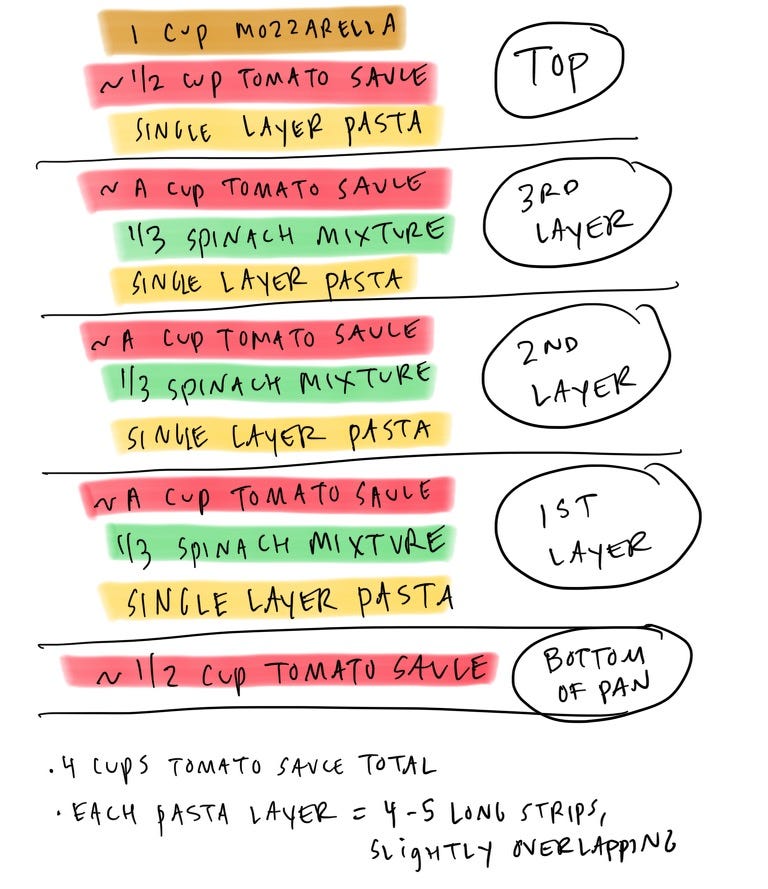 1 CUP MOZZARELLA
~ 1/2 CUP TOMATO SAUCE
TOP
SINGLE LAYER PASTA
~ A CUP TOMATO SAUCE
3RD
LAYER
1/3 SPINACH MIXTURE
SINGLE LAYER PASTA
~ A CUP TOMATO SAUCE
2ND
LAYER
1/3 SPINACH MIXTURE
SINGLE LAYER PASTA
~ A CUP TOMATO SAUCE
1ST
LAYER
1/3 SPINACH MIXTURE
SINGLE LAYER PASTA
~ 1/2 CUP TOMATO SAUCE
BOTTOM
OF PAN
· 4 CUPS TOMATO SAUCE TOTAL
· EACH PASTA LAYER = 4-5 LONG STRIPS,
SLIGHTLY OVERLAPPING